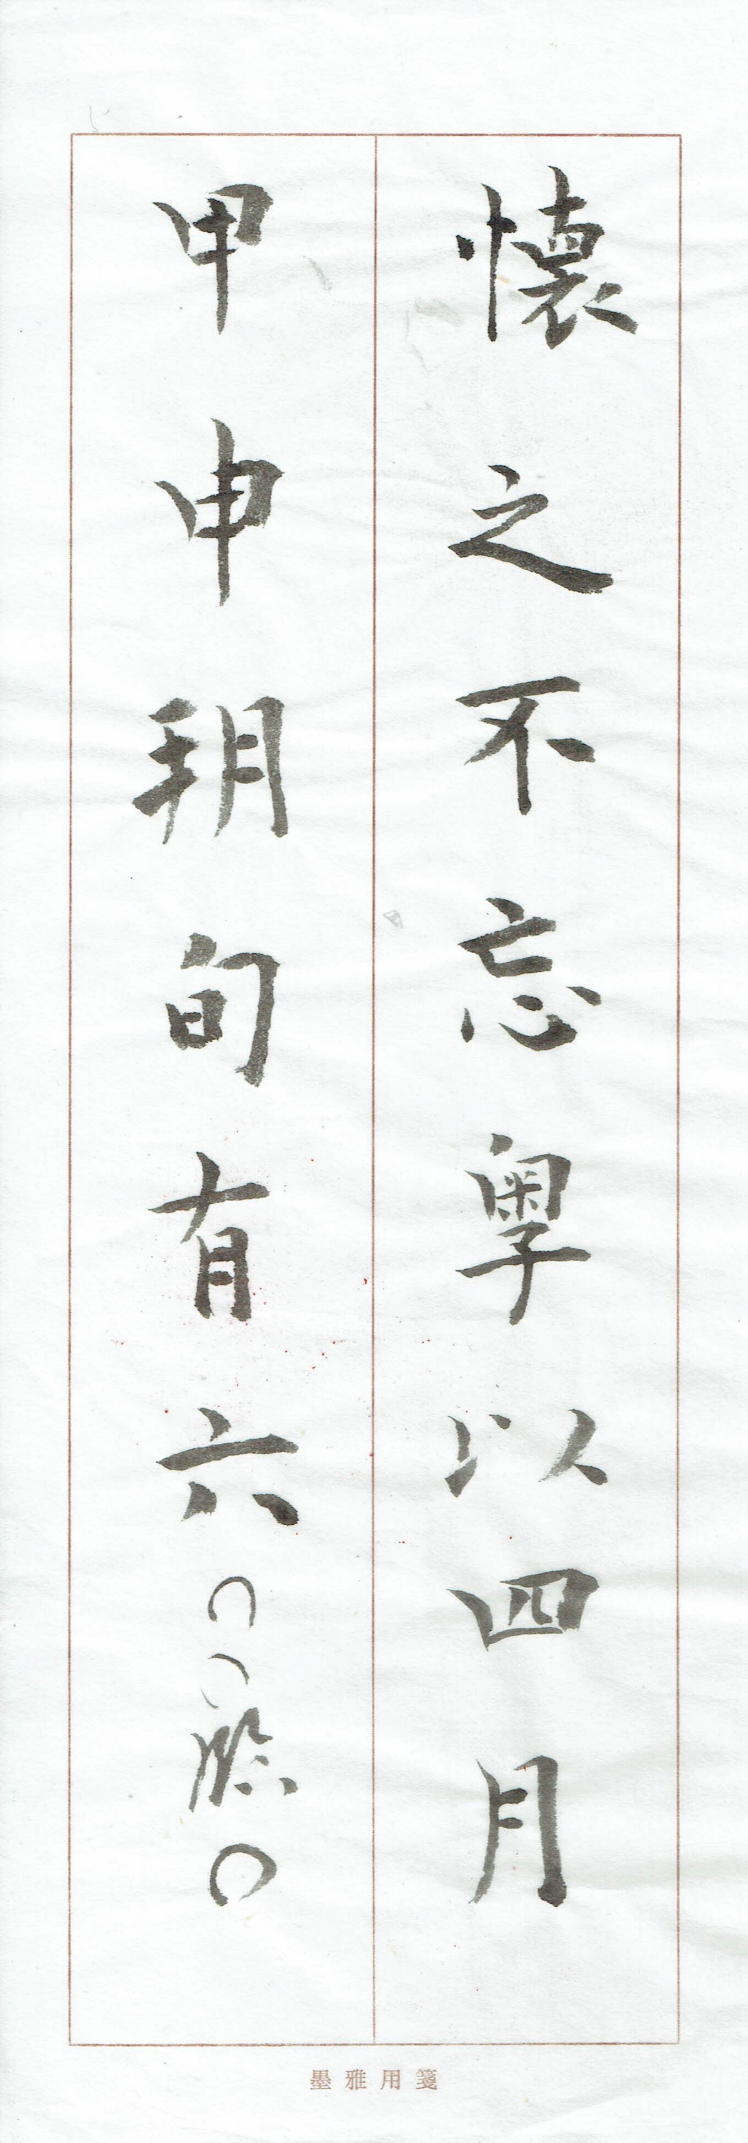 懷之不忘粤以四月
甲申玥旬有六〇〇臨〇
墨雅用箋